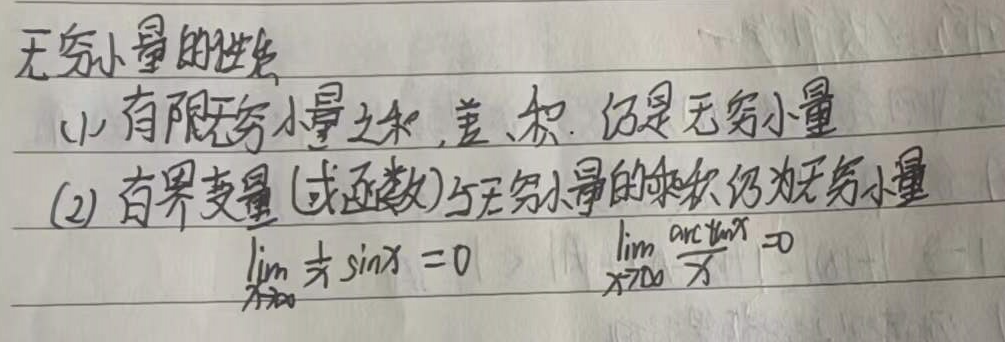 无穷小量的性质
(1) 有限无穷小量之和、差、积.仍是无穷小量
(2) 有界变量(或函数)与无穷小量的乘积仍为无穷小量
lim x→∞ 1/x sinx = 0 lim x→∞ arctanx/x = 0